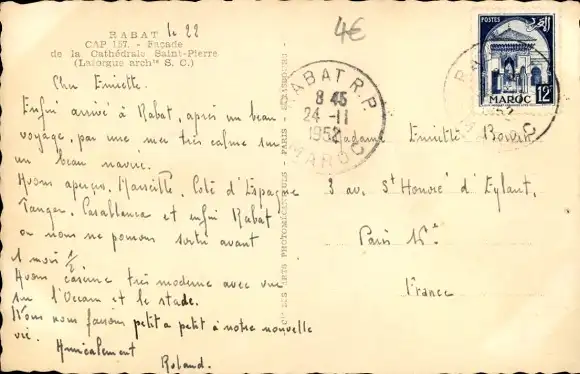 RABAT
le 22
4€
CAP 157. - Façade
de la Cathédrale Saint-Pierre
(Laforgue archte S. C.)
Cher Emiette.
Enfin arrivé à Rabat, après un beau
voyage, par une mer très calme sur
un beau navire.
Avons aperçu, Marseille, Côte d'Espagne
Tanger, Casablanca et enfin Rabat
ou nous ne pouvons sortir avant
1 mois 1/2
Avons caserne très moderne avec vue
sur l'Ocean et le stade.
Nous nous faisons petit a petit à notre nouvelle
vie.
Amicalement
Roland.
RABAT R.P.
8 45
24-11
1952
MAROC
POSTES
MAROC 12F
Madame
3 av. St Honoré d'Eylau,
Paris
France